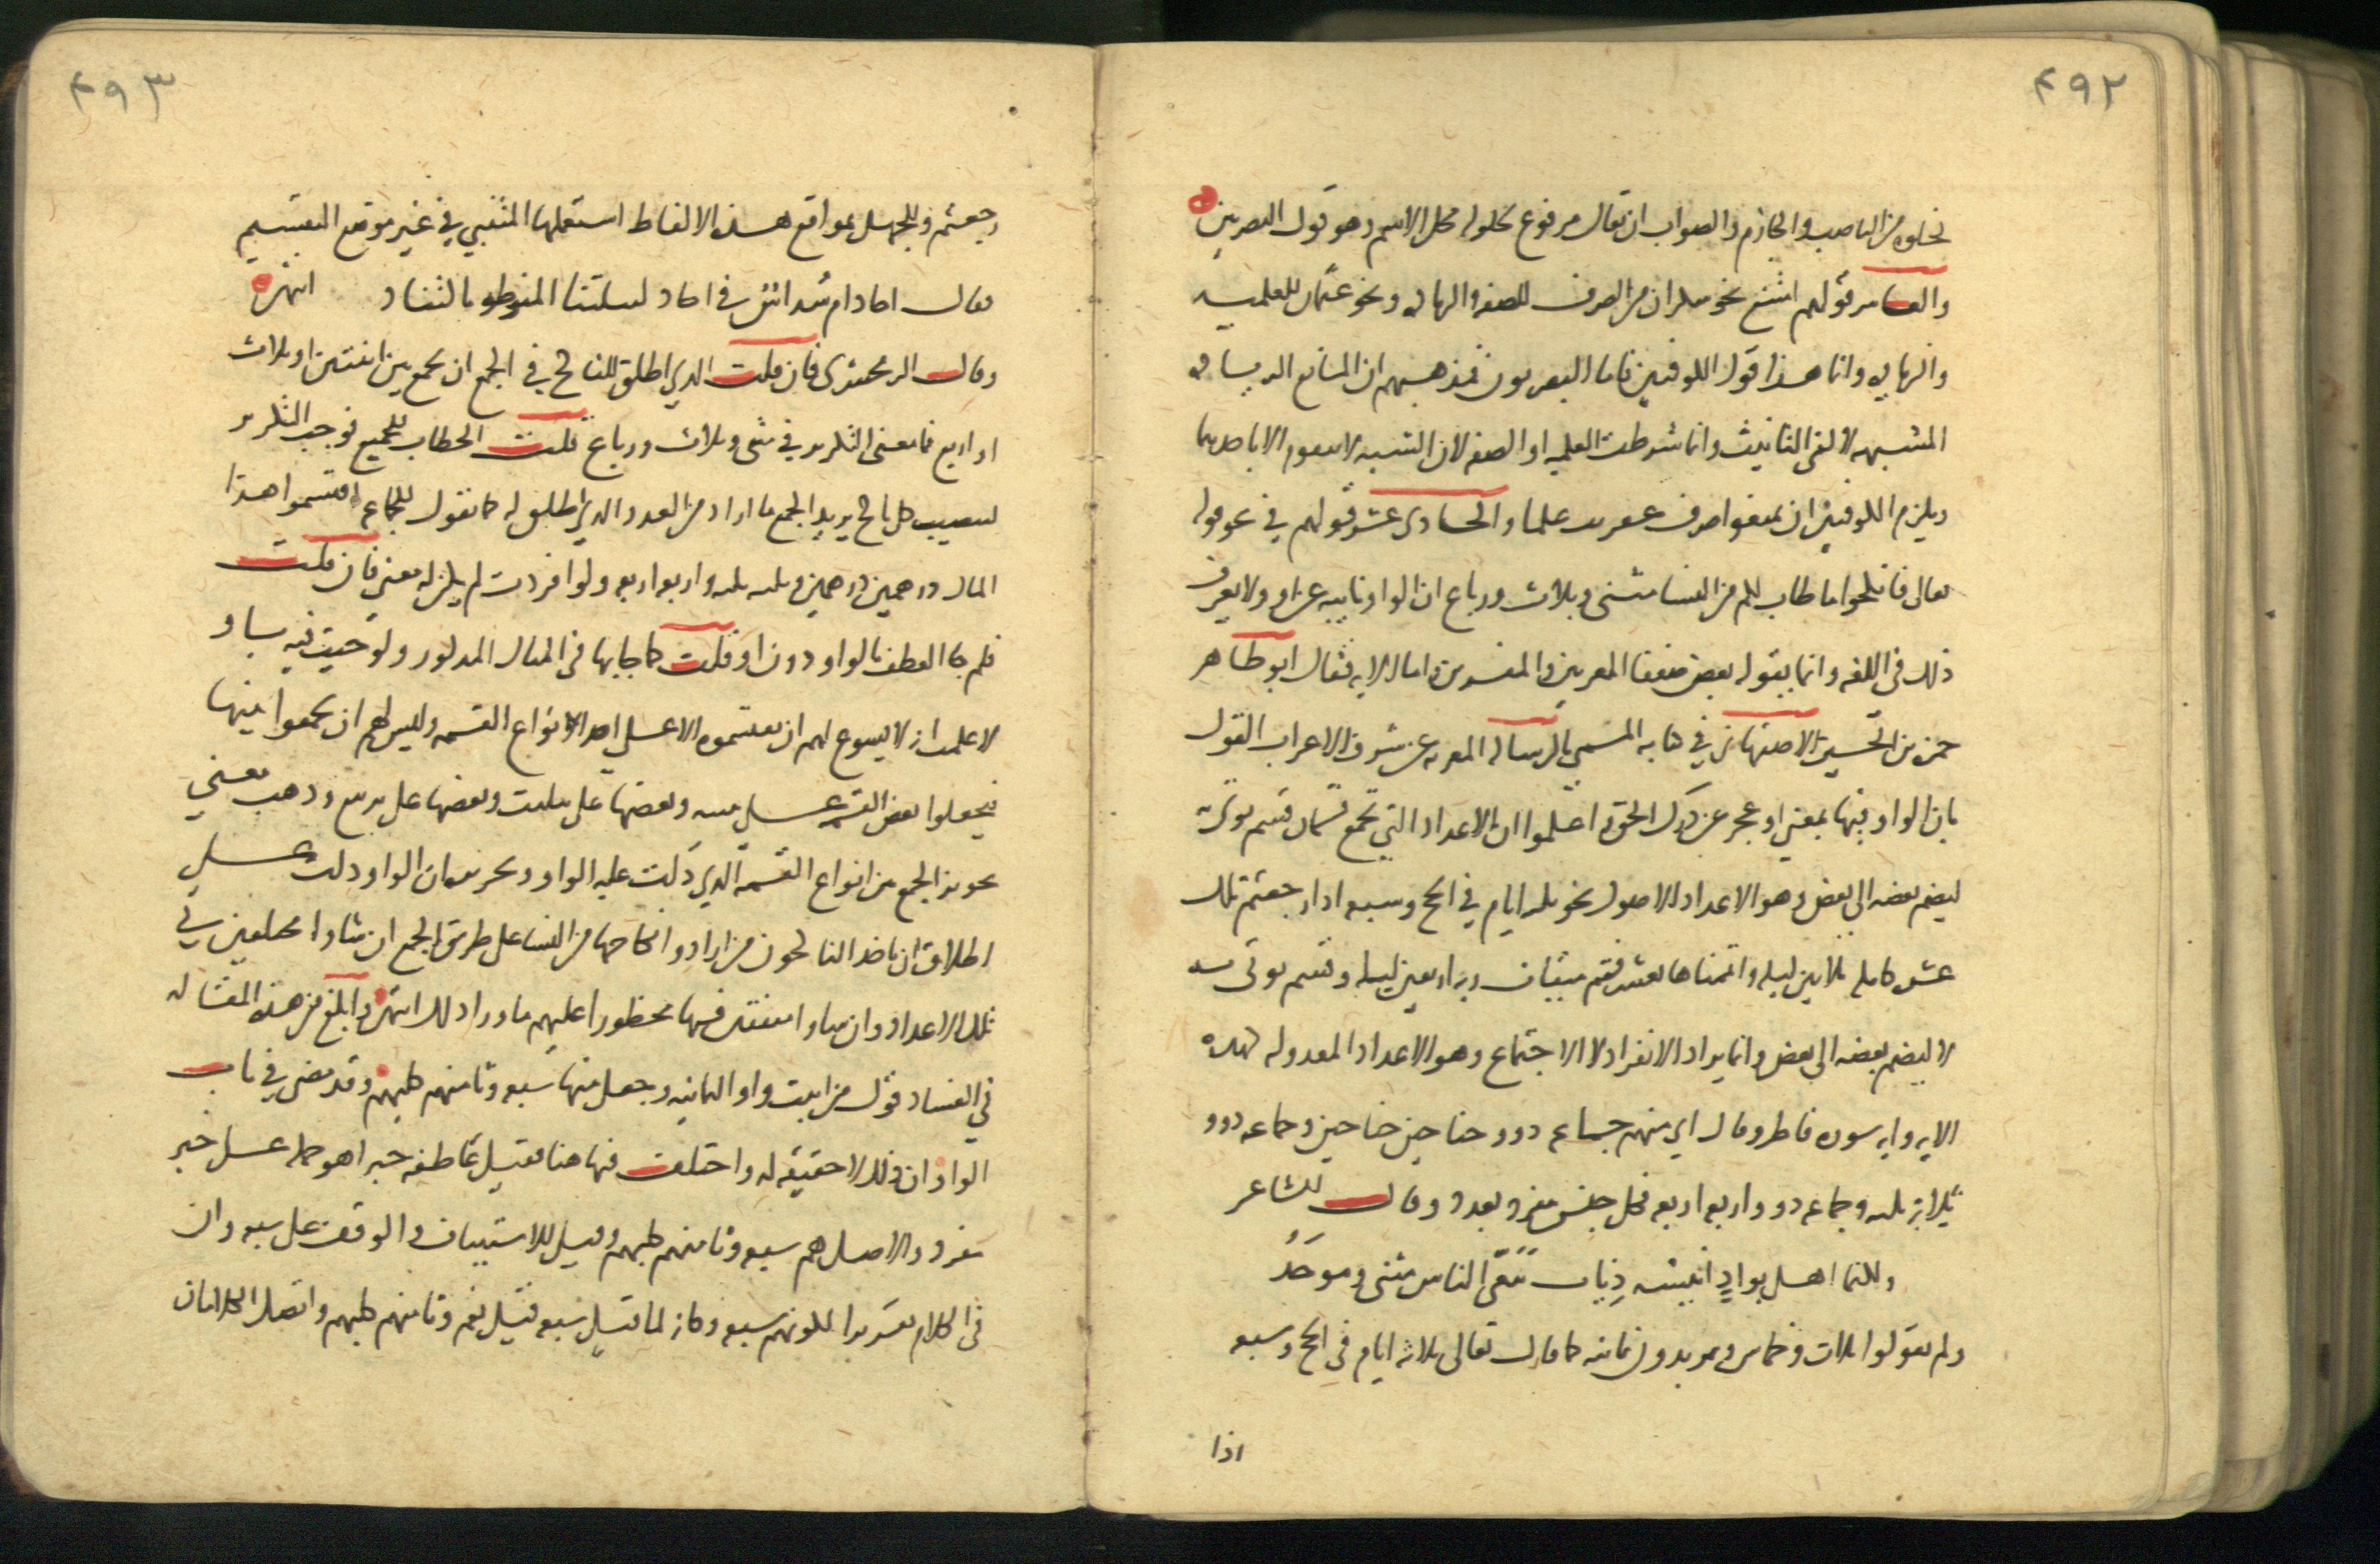 ٤٩٢
لخلوه من الناصب والجازم والصواب ان يقال مرفوع لحلوله محل الاسم وهو قول البصريين
والعاشر قولهم امتنع نحو سكران من الصرف للصفه والزياده ونحو عثمان للعلميه
والزياده وانما هذا قول الكوفيين فاما البصريون فمذهبهم ان المانع الزياده
المشبهه لالفي التانيث وانما شرطت العلميه او الصفه لان الشبه لا يتقوم الا باحدهما
ويلزم الكوفيين ان يمنعوا صرف عفريت علما والحادي عشر قولهم في نحو قوله
تعالى فانكحوا ما طاب لكم من النسا مثنى وثلاث ورباع ان الواو نايبه عن او ولا يعرف
ذلك في اللغه وانما يقوله بعض ضعفا المعربين والمفسرين واما الايه فقال ابو طاهر
حمزه بن الحسين الاصفهاني في كتابه المسمى بالرساله المعربه عن شرف الاعراب القول
بان الواو فيها بمعنى او عجز عن درك الحق فاعلموا ان الاعداد التي تجمع قسمان قسم يوتى به
ليضم بعضه الى بعض وهو الاعداد الاصول نحو ثلثه ايام في الحج وسبعه اذا رجعتم تلك
عشره كامله ثلاثين ليله واتممناها بعشر فتم ميقات ربه اربعين ليله وقسم يوتى به
لا ليضم بعضه الى بعض وانما يراد الانفراد لا الاجتماع وهو الاعداد المعدوله كهذه
الايه وايه سوره فاطر وقال اي منهم جماعه ذوو جناحين جناحين وجماعه ذوو
ثلاثه ثلثه وجماعه ذوو اربعه اربعه فكل جنس مفرد بعدد وقال الشاعر
ولكنما اهلي بوادٍ انيسه ذِياب تبغّى الناس مثنى وموحَدُ
ولم يقولوا ثلاث وخماس ويريدون ثمانيه كما قال تعالى ثلاثه ايام في الحج وسبعه
اذا
٤٩٣
رجعتم وللجهل بمواقع هذه الالفاظ استعملها المتنبي في غير موقع التقسيم
فقال احاد ام سداس في احاد لييلتنا المنوطه بالتناد انتهى
وقال الزمخشري فان قلت الذي اطلق للناكح في الجمع ان يجمع بين اثنتين او ثلاث
او اربع فما معنى التكرير في مثنى وثلاث ورباع قلت الخطاب للجميع فوجب التكرير
ليصيب كل ناكح يريد الجمع ما اراد من العدد الذي اطلق له كما تقول للجماعه اقتسموا هذا
المال درهمين درهمين وثلثه ثلثه واربعه اربعه ولو افردت لم يكن له معنى فان قلت
فلم جا العطف بالواو دون او قلت كما جابها في المثال المذكور ولو جيت فيه باو
لاعلمت انه لا يسوغ لهم ان يقتسموه الا على احد انواع القسمه وليس لهم ان يجمعوا بينها
فيجعلوا بعض القسمه على تثنيه وبعضها على تثليث وبعضها على تربيع وذهب معنى
تجويز الجمع بين انواع القسمه الذي دلت عليه الواو وتحريره ان الواو دلت على
اطلاق ان ياخذ الناكحون من ارادوا نكاحها من النسا على طريق الجمع ان شاوا مختلفين في
تلك الاعداد وان شاوا متفقين فيها محظورا عليهم ما ورا ذلك انتهى وابلغ من هذه المقاله
في الفساد قول من اثبت واو الثمانيه وجعل منها سبعه وثامنهم كلبهم وقد مضى في باب
الواو ان ذلك لا حقيقه له واختلف فيها هنا فقيل عاطفه خبرا هو جمله على خبر
مفرد والاصل هم سبعه وثامنهم كلبهم وقيل للاستيناف والوقف على سبعه وان
في الكلام تقديرا لكونهم سبعه وكانه لما قيل سبعه قيل نعم وثامنهم كلبهم واتصل الكلامان